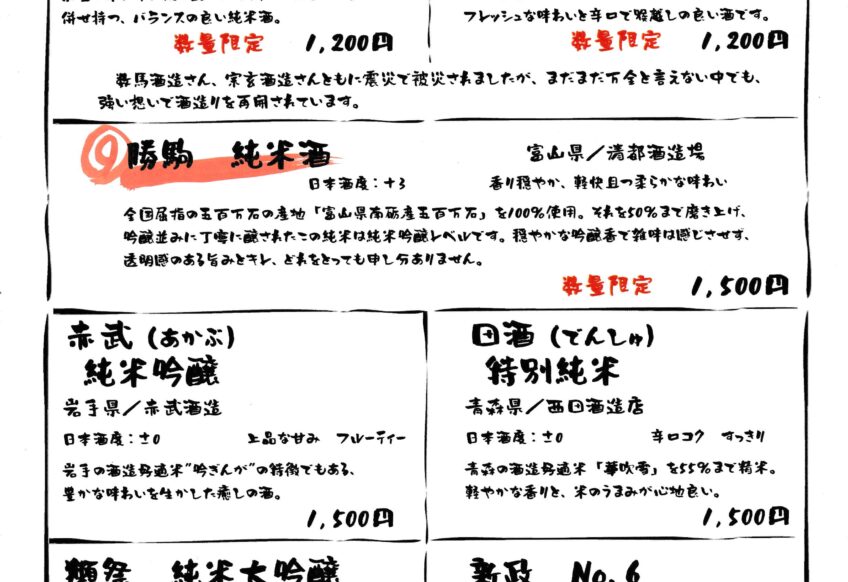 併せ持つ、バランスの良い純米酒。
数量限定 1,200円
フレッシュな味わいと辛口で喉越しの良い酒です。
数量限定 1,200円
数馬酒造さん、宗玄酒造さんともに震災で被災されましたが、まだまだ万全と言えない中でも、
強い想いで酒造りを再開されています。
⑨ 勝駒 純米酒
富山県／清都酒造場
日本酒度：+3 香り穏やか、軽快且つ柔らかな味わい
全国屈指の五百万石の産地「富山県南砺産五百万石」を100%使用。それを50%まで磨き上げ、
吟醸並みに丁寧に醸されたこの純米は純米吟醸レベルです。穏やかな吟醸香で雑味は感じさせず、
透明感のある旨みとキレ、どれをとっても申し分ありません。
数量限定 1,500円
赤武（あかぶ）
純米吟醸
岩手県／赤武酒造
日本酒度：±0 上品な甘み フルーティー
岩手の酒造好適米"吟ぎんが"の特徴でもある、
豊かな味わいを生かした癒しの酒。
1,500円
田酒（でんしゅ）
特別純米
青森県／西田酒造店
日本酒度：±0 辛口コク すっきり
青森の酒造好適米「華吹雪」を55%まで精米。
軽やかな香りと、米のうまみが心地良い。
1,500円
獺祭 純米大吟醸
新政 No.6